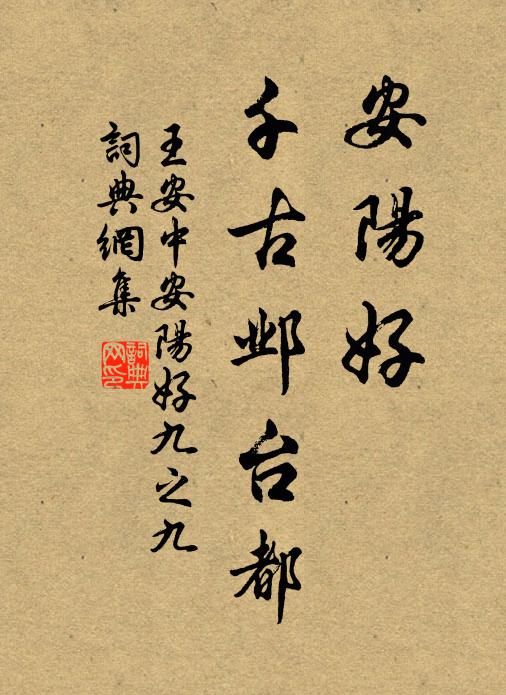 安陽好
千古邺台都
王安中安陽好九之九
詞典網集
詞典网印